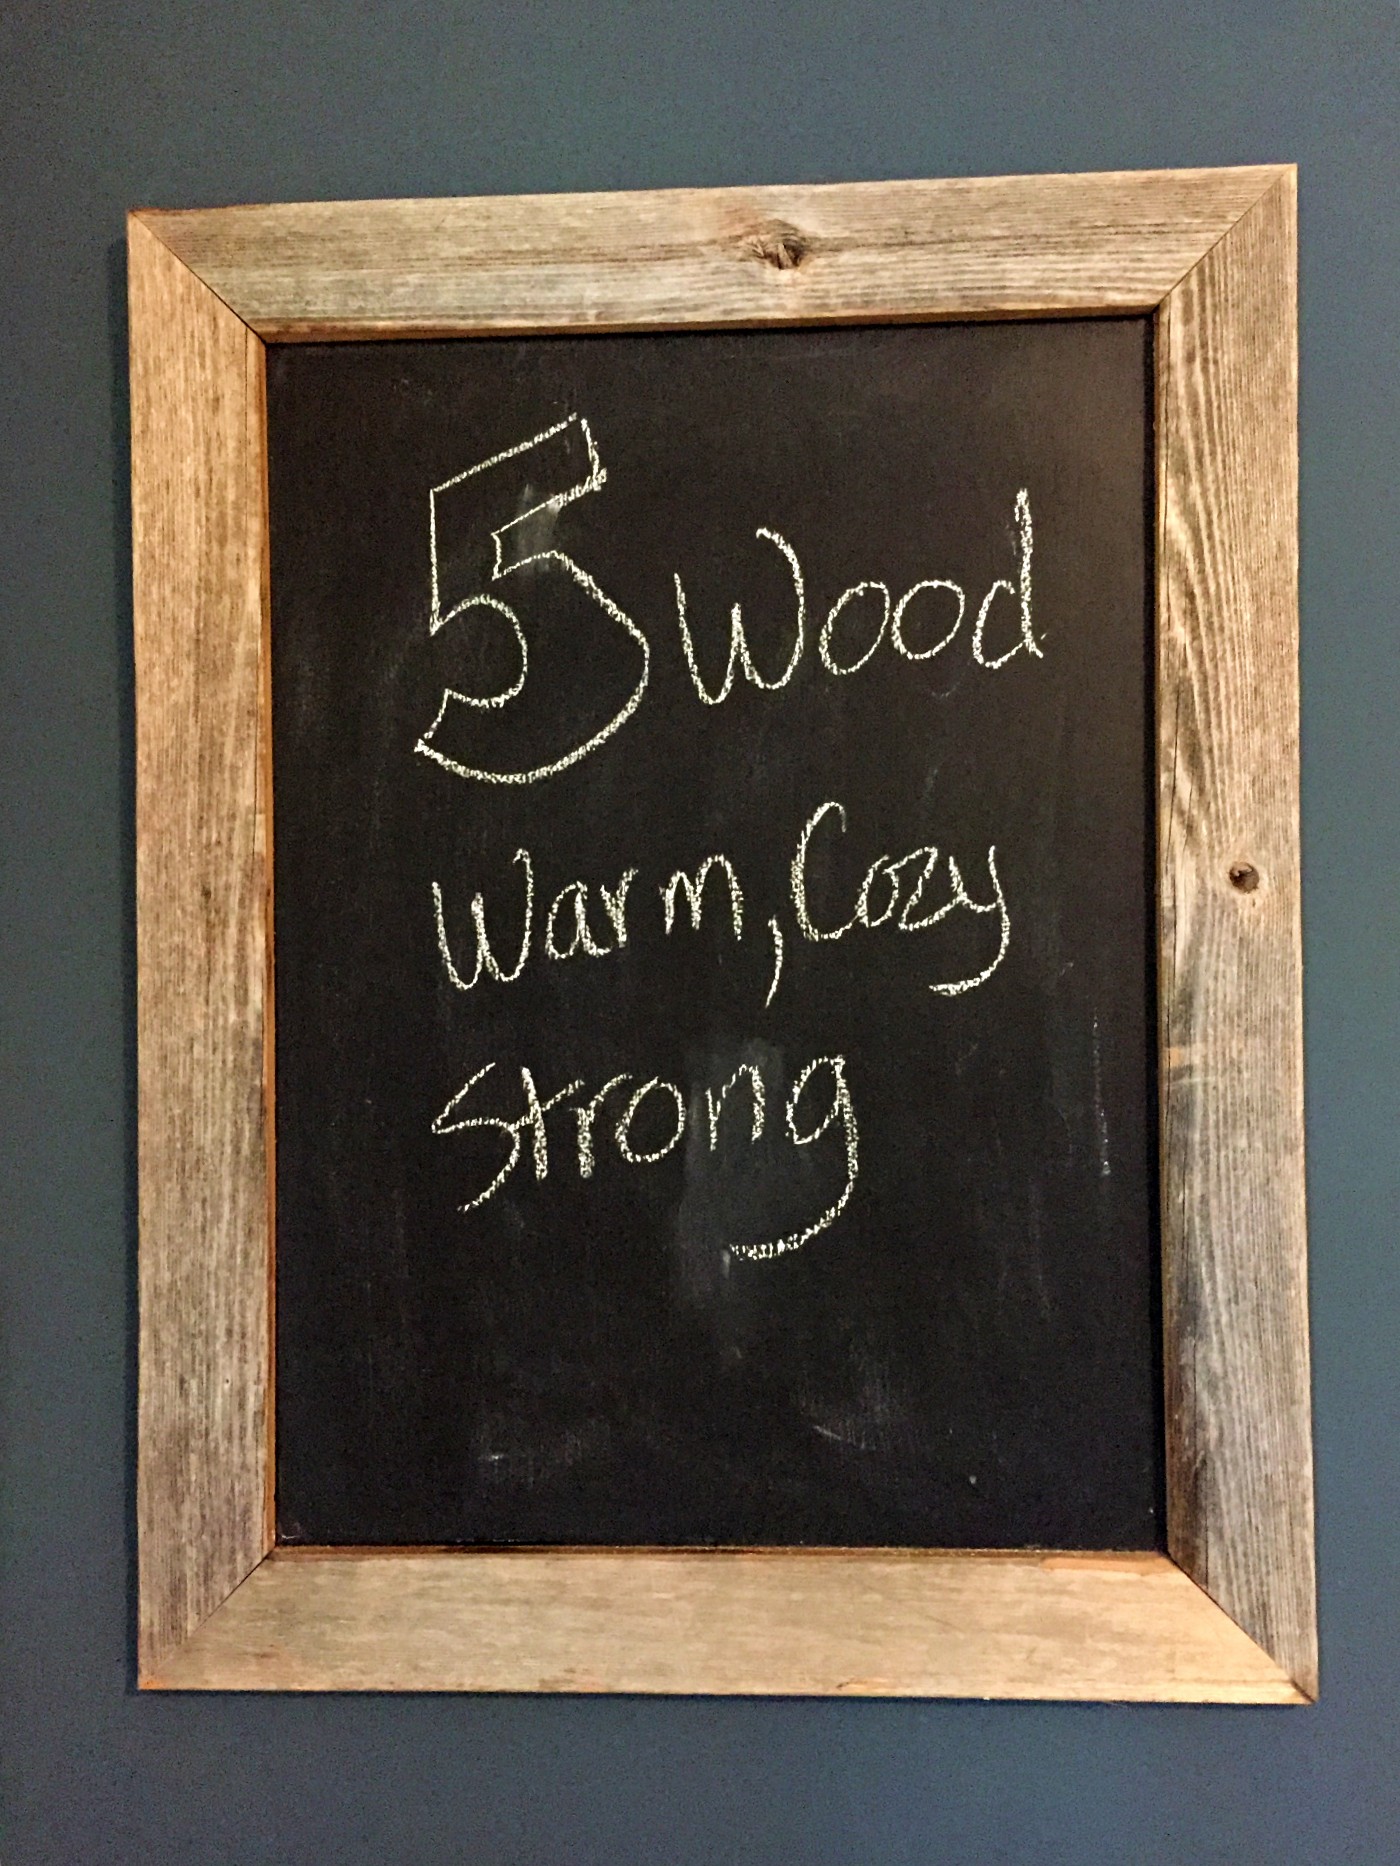 5 Wood
Warm, Cozy
Strong